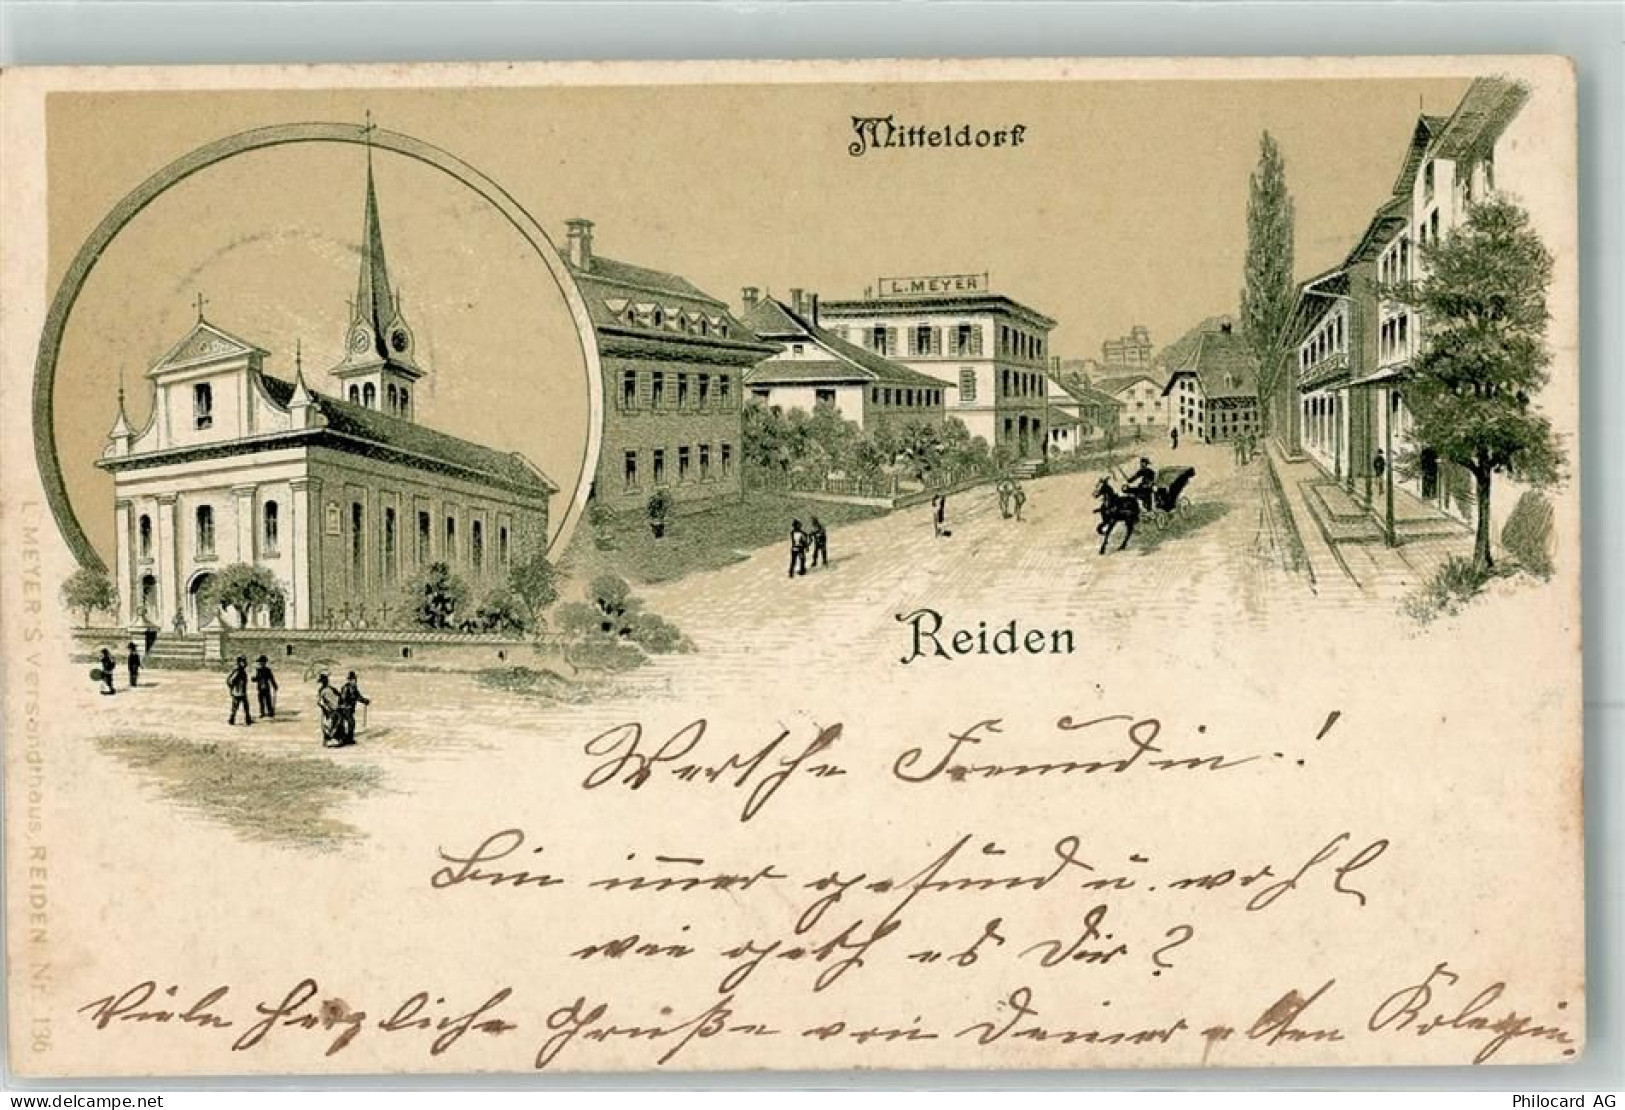 Mitteldorf
L. MEYER
Reiden
L. MEYER'S Versandhaus, REIDEN Nr. 136
Werthe Freundin!
Bin immer gesund u. wohl
wie geht es Dir?
Viele herzliche Grüße von Deiner alten Kolegin.
delcampe.net
Philocard AG